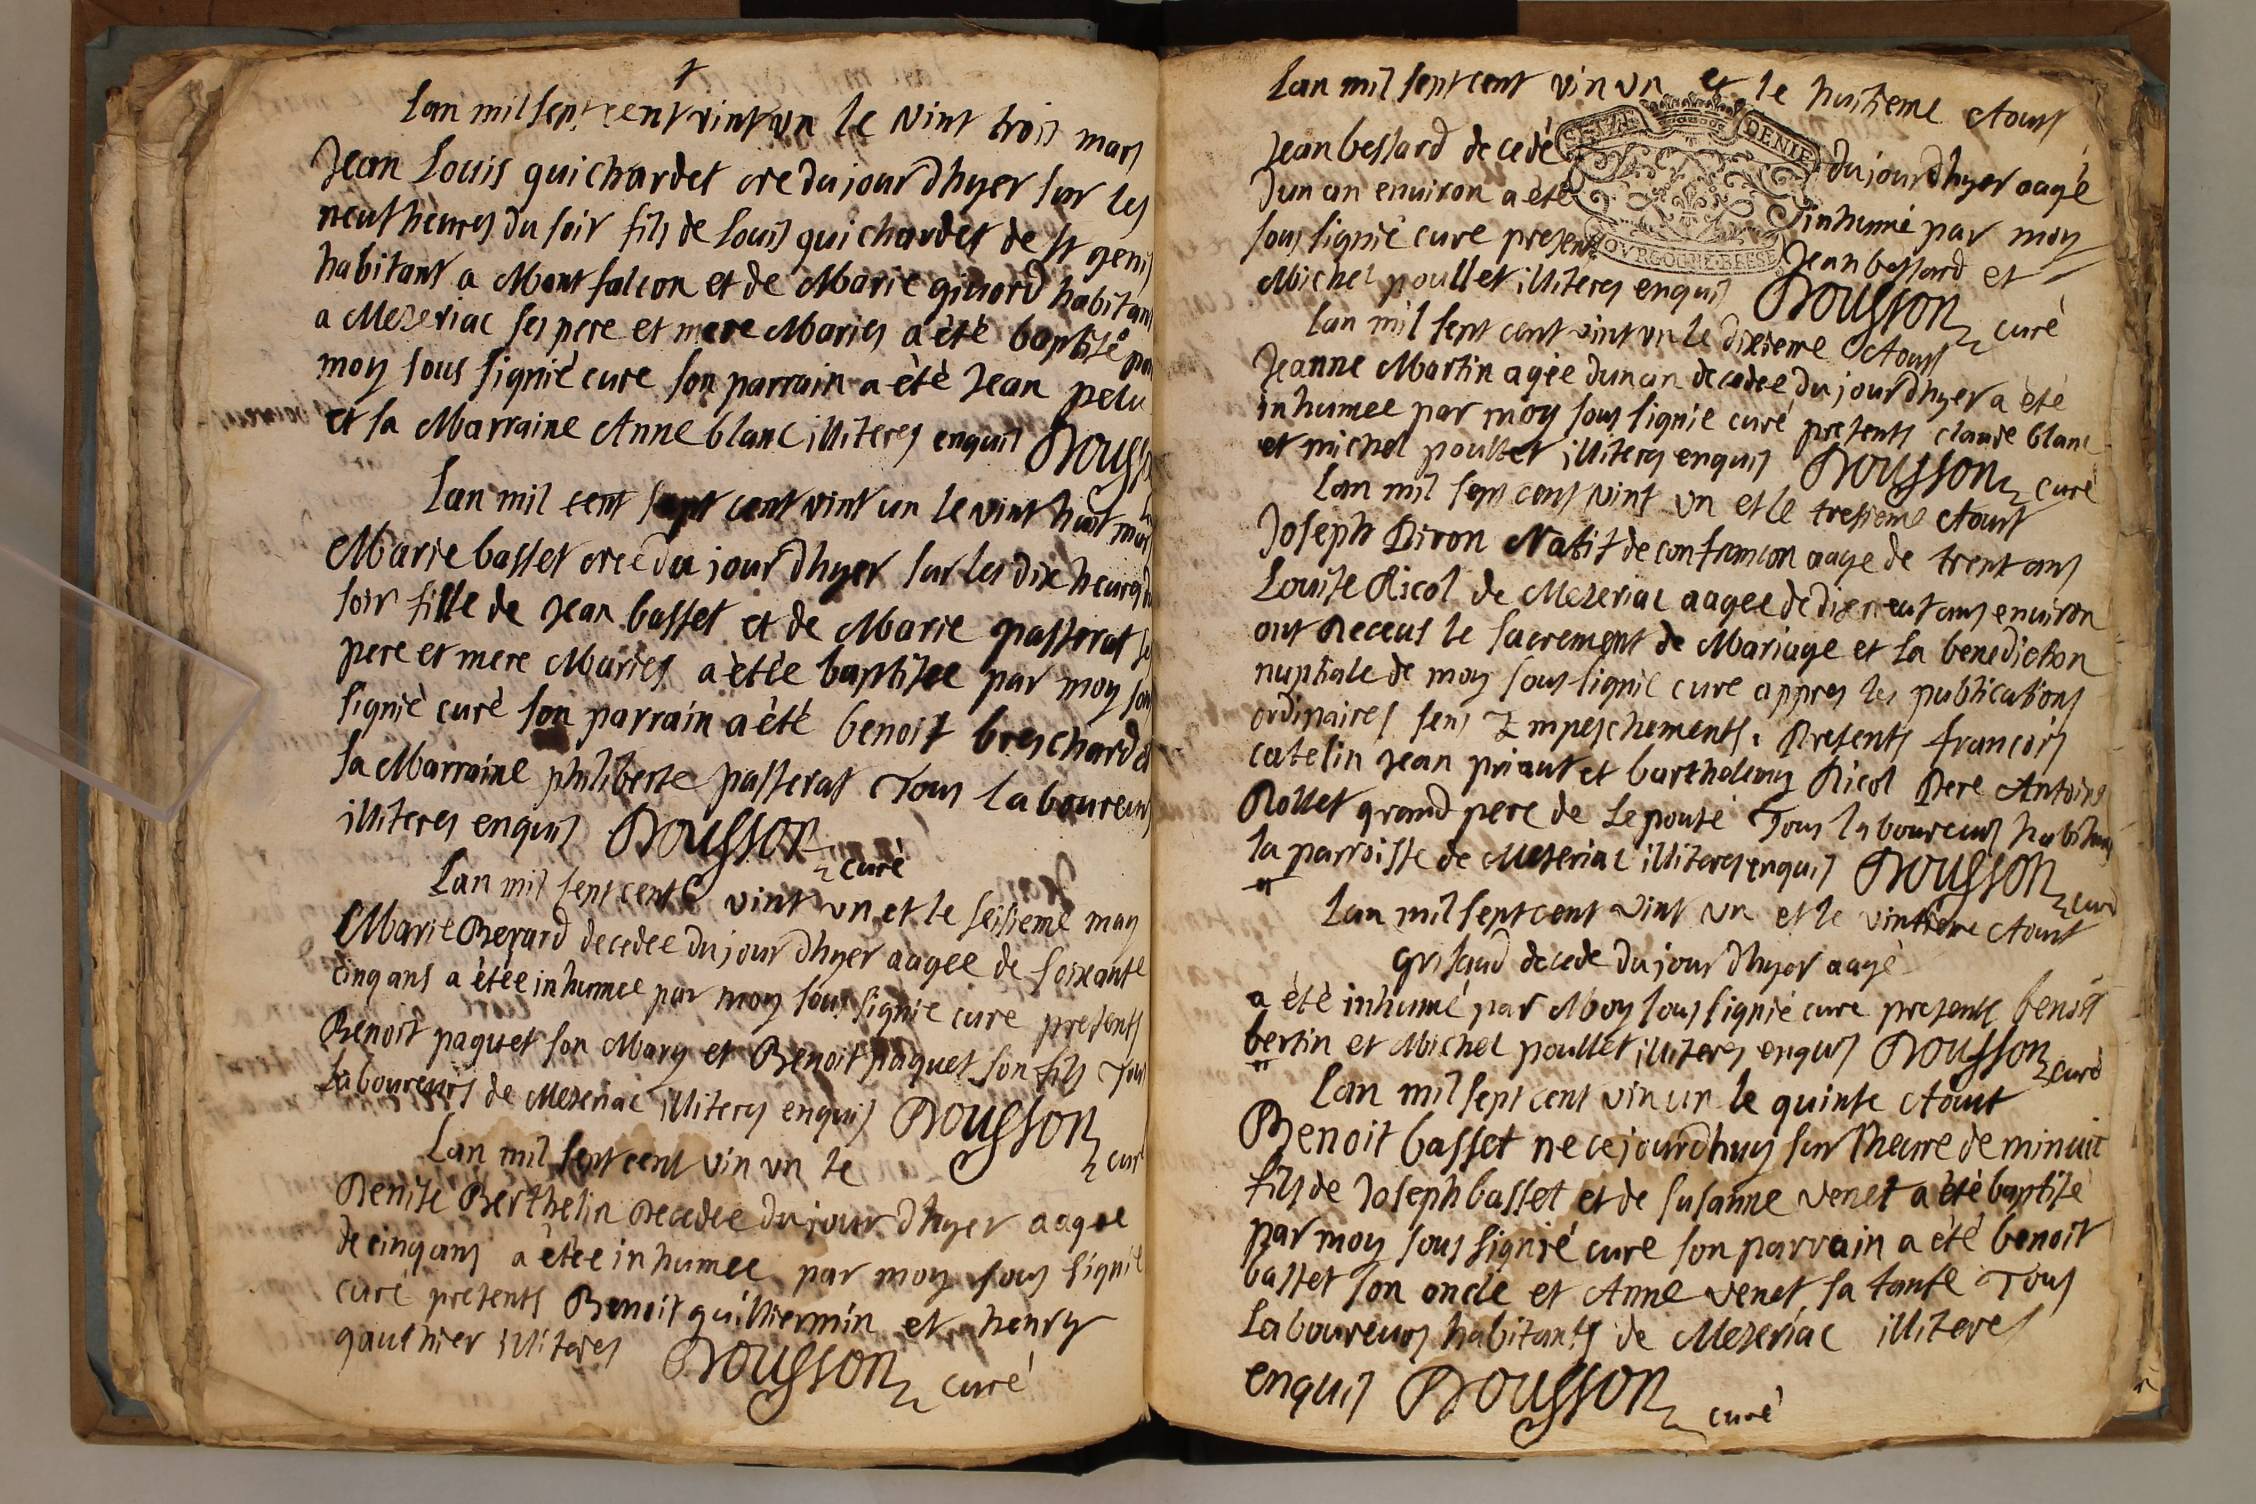 †
Lan mil sept cent vint vn le vint trois mars
Jean Louis guichardet ore dujour dhyer sur les
neuf heures du soir fils de louis guichardet de st genis
habitant a Montfalcon et de Marie girord habitant
a Mezeriac ses pere et mere Maries a èté baptisé par
moy sous signié cure son parrain a èté Jean pelu
et sa Marraine Anne blanc illiteres enquis Dousson
Lan mil cent sept cent vint un le vint huit mars
Marie basset oreé du jour dhyer sur les dix heures du
soir fille de Jean basset et de Marie passerat ses
pere et mere Maries a ètèe baptisee par moy sous
signié curé son parrain a èté benoit breschard et
sa Marraine philiberte passerat Tous laboureurs
illiteres enquis Dousson curé
Lan mil sept cent vint vn et le seisieme may
Marie Berard decedee dujour dhyer aagee de soixante
cinq ans a ètèe inhumee par moy sous signié cure presents
Benoit paquet son Mary et Benoit paquet son fils Tous
Laboureurs de Mezeriac illiteres enquis Dousson curé
Lan mil sept cent vin vn le
Benite Berthelin Decedee dujour dhyer aagee
de cinq ans a ètèe inhumee par moy sous signié
curé presents Benoit guilliermin et henry
gauthier illiteres Dousson curé
Lan mil sept cent vin vn et le huitieme Aoust
Jean bessard decedé dujour dhyer aagé
Dun an environ a été inhumé par moy
sous signié cure presents Jean bessard et
Michel poullet illiteres enquis Dousson curé
BOVRGOGNE·BRESSE
Lan mil sept cent vint vn le dixieme Aoust
Jeanne Martin agée dun an decedee Dujour dhyer a èté
inhumee par moy sous signié curé presents claude blanc
et michel poullet illiteres enquis Dousson curé
Lan mil sept cent vint vn et le tressieme Aoust
Joseph Diron Natif de confrancon aage de trent ans
Louise Ricol de Mezeriac aagee de dix neuf ans environ
ont Receus le sacrement de Mariage et la benediction
nuptiale de moy sous signié cure appres les publications
ordinaires sens Empeschements. Presents francois
catelin Jean priaut et bartholemy Ricol Pere Antoine
Rollet grand pere de Lepouse Tous laboureurs habitans
la parroisse de Mezeriac illiteres enquis Dousson curé
Lan mil sept cent vint vn et le vintieme Aoust
grisaud decede dujour dhyer aagé
a èté inhumé par Moy sous signié cure presents benoit
bertin et Michel poullet illiteres enquis Dousson curé
Lan mil sept cent vin un le quinse Aoust
Benoit basset ne cejourdhuy sur lheure de minuit
fils de Joseph basset et de susanne venet a èté baptisé
par moy sous signié cure son parrain a èté benoit
basset son oncle et Anne venet sa tante Tous
Laboureurs habitants de Mezeriac illiteres
enquis Dousson curé